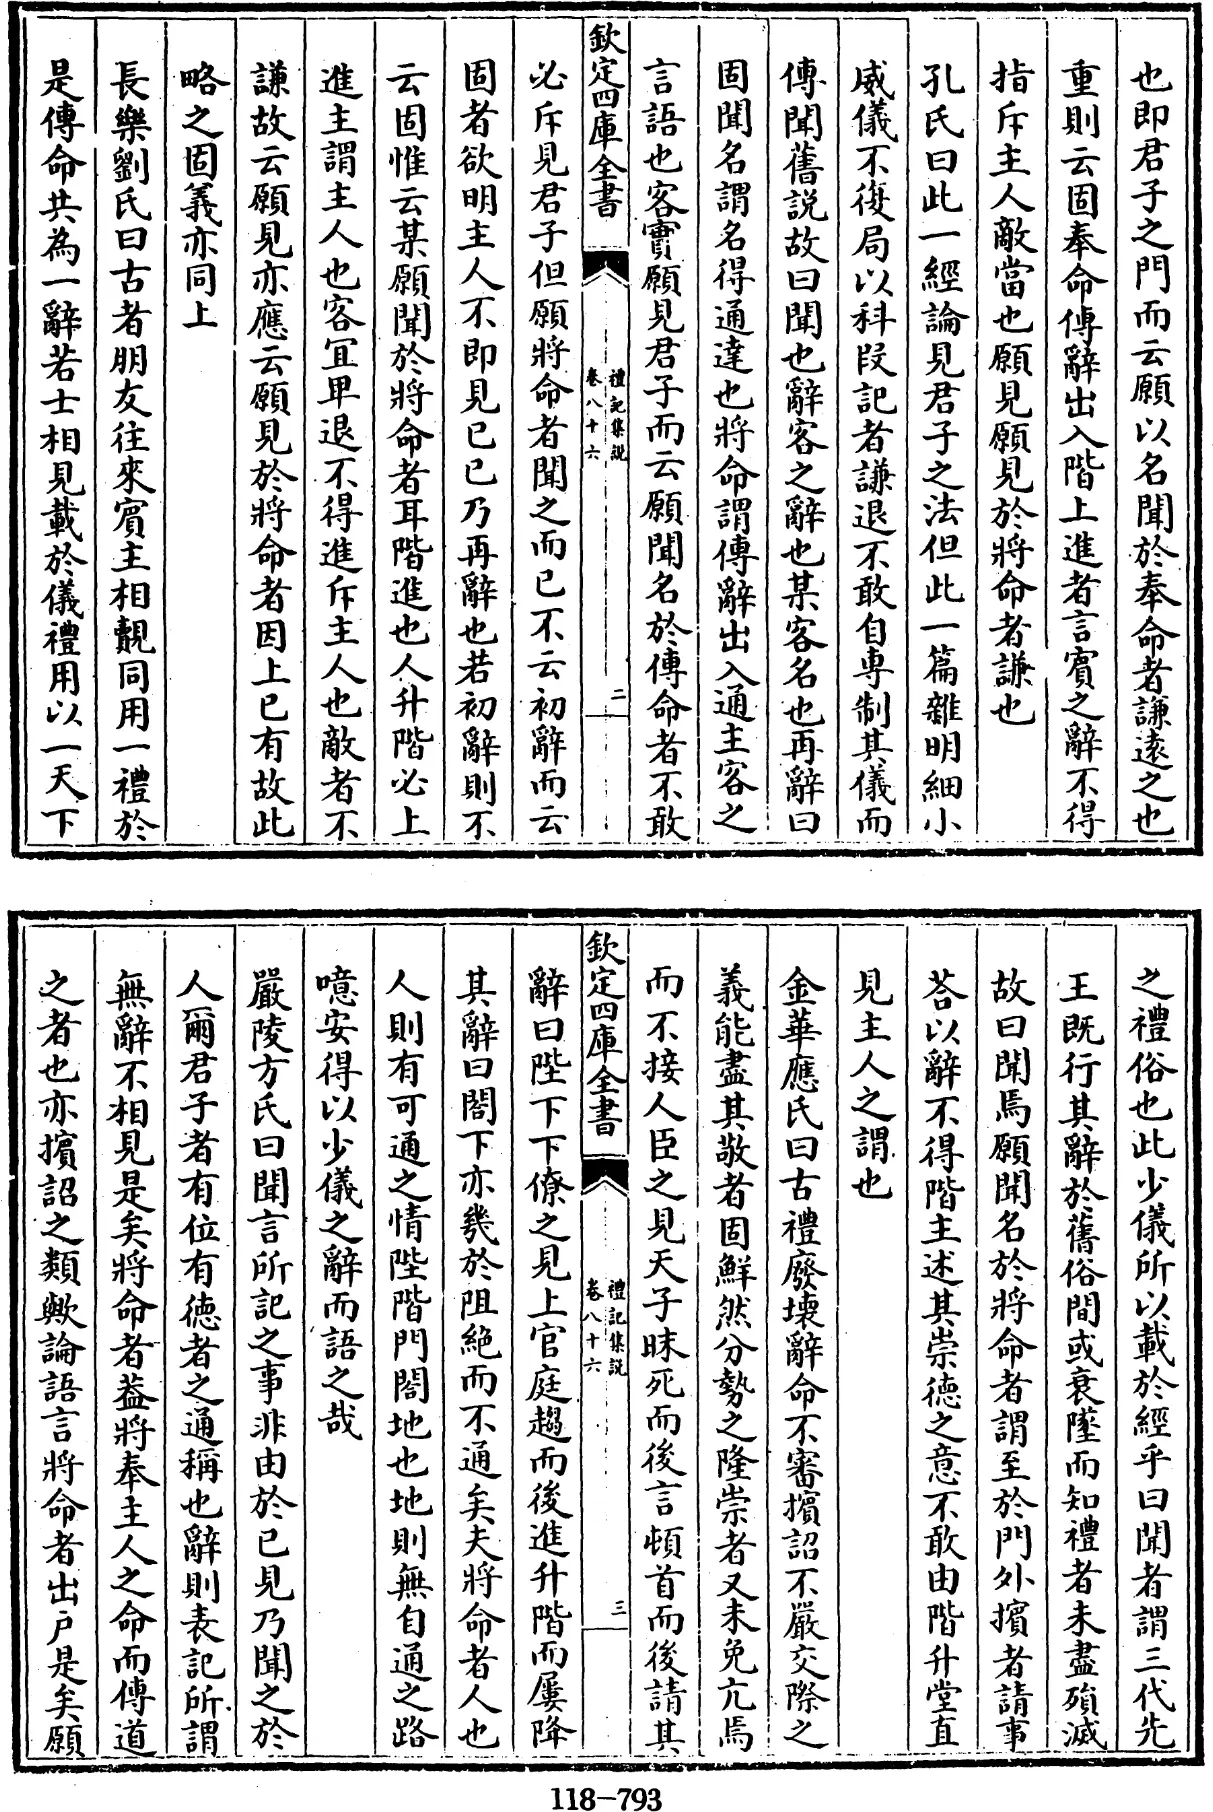 也即君子之門而云願以名聞於奉命者謙遠之也
重則云固奉命傳辭出入階上進者言賓之辭不得
指斥主人敵當也願見願見於將命者謙也
孔氏曰此一經論見君子之法但此一篇雜明細小
威儀不復局以科段記者謙退不敢自専制其儀而
傳聞舊説故曰聞也辭客之辭也某客名也再辭曰
固聞名謂名得通達也將命謂傳辭出入通主客之
言語也客實願見君子而云願聞名於傳命者不敢
欽定四庫全書
禮記集説
卷八十六
二
必斥見君子但願將命者聞之而已不云初辭而云
固者欲明主人不即見已已乃再辭也若初辭則不
云固惟云某願聞於將命者耳階進也人升階必上
進主謂主人也客宜卑退不得進斥主人也敵者不
謙故云願見亦應云願見於將命者因上已有故此
略之固義亦同上
長樂劉氏曰古者朋友往來賓主相覿同用一禮於
是傳命共為一辭若士相見載於儀禮用以一天下
之禮俗也此少儀所以載於經乎曰聞者謂三代先
王既行其辭於舊俗間或衰墜而知禮者未盡殞滅
故曰聞焉願聞名於將命者謂至於門外擯者請事
荅以辭不得階主述其崇徳之意不敢由階升堂直
見主人之謂也
金華應氏曰古禮廢壊辭命不審擯詔不嚴交際之
義能盡其敬者固鮮然分勢之隆崇者又未免亢焉
而不接人臣之見天子昧死而後言頓首而後請其
欽定四庫全書
禮記集説
卷八十六
三
辭曰陛下下僚之見上官庭趨而後進升階而屢降
其辭曰閤下亦幾於阻絶而不通矣夫將命者人也
人則有可通之情陛階門閤地也地則無自通之路
噫安得以少儀之辭而語之哉
嚴陵方氏曰聞言所記之事非由於已見乃聞之於
人爾君子者有位有徳者之通稱也辭則表記所謂
無辭不相見是矣將命者葢將奉主人之命而傳道
之者也亦擯詔之類歟論語言將命者出戸是矣願
118-793